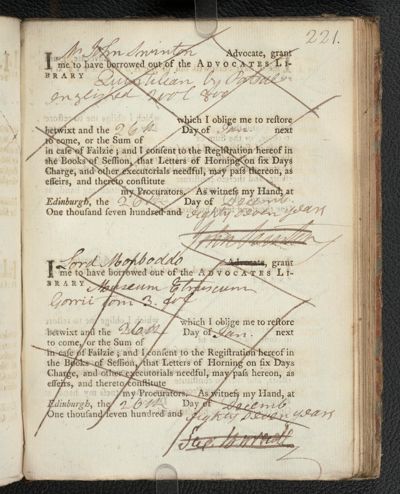 221.
I Mr John Swinton Advocate, grant
me to have borrowed out of the ADVOCATES LI-
BRARY Quintilian by
englished vol 8vo
which I oblige me to restore
betwixt and the 26th Day of Jan. next
to come, or the Sum of
in case of Failzie; and I consent to the Registration hereof in
the Books of Session, that Letters of Horning on six Days
Charge, and other executorials needful, may pass thereon, as
effeirs, and thereto constitute
my Procurators. As witness my Hand, at
Edinburgh, the 26th Day of Decemb.
One thousand seven hundred and eighty seven years
John Swinton
I Lord Monboddo Advocate, grant
me to have borrowed out of the ADVOCATES LI-
BRARY Museum Etruscum
Gorrii tom 3. fol
which I oblige me to restore
betwixt and the 26th Day of Jan. next
to come, or the Sum of
in case of Failzie; and I consent to the Registration hereof in
the Books of Session, that Letters of Horning on six Days
Charge, and other executorials needful, may pass thereon, as
effeirs, and thereto constitute
my Procurators. As witness my Hand, at
Edinburgh, the 26th Day of Decemb
One thousand seven hundred and eighty seven years
Jas Burnett